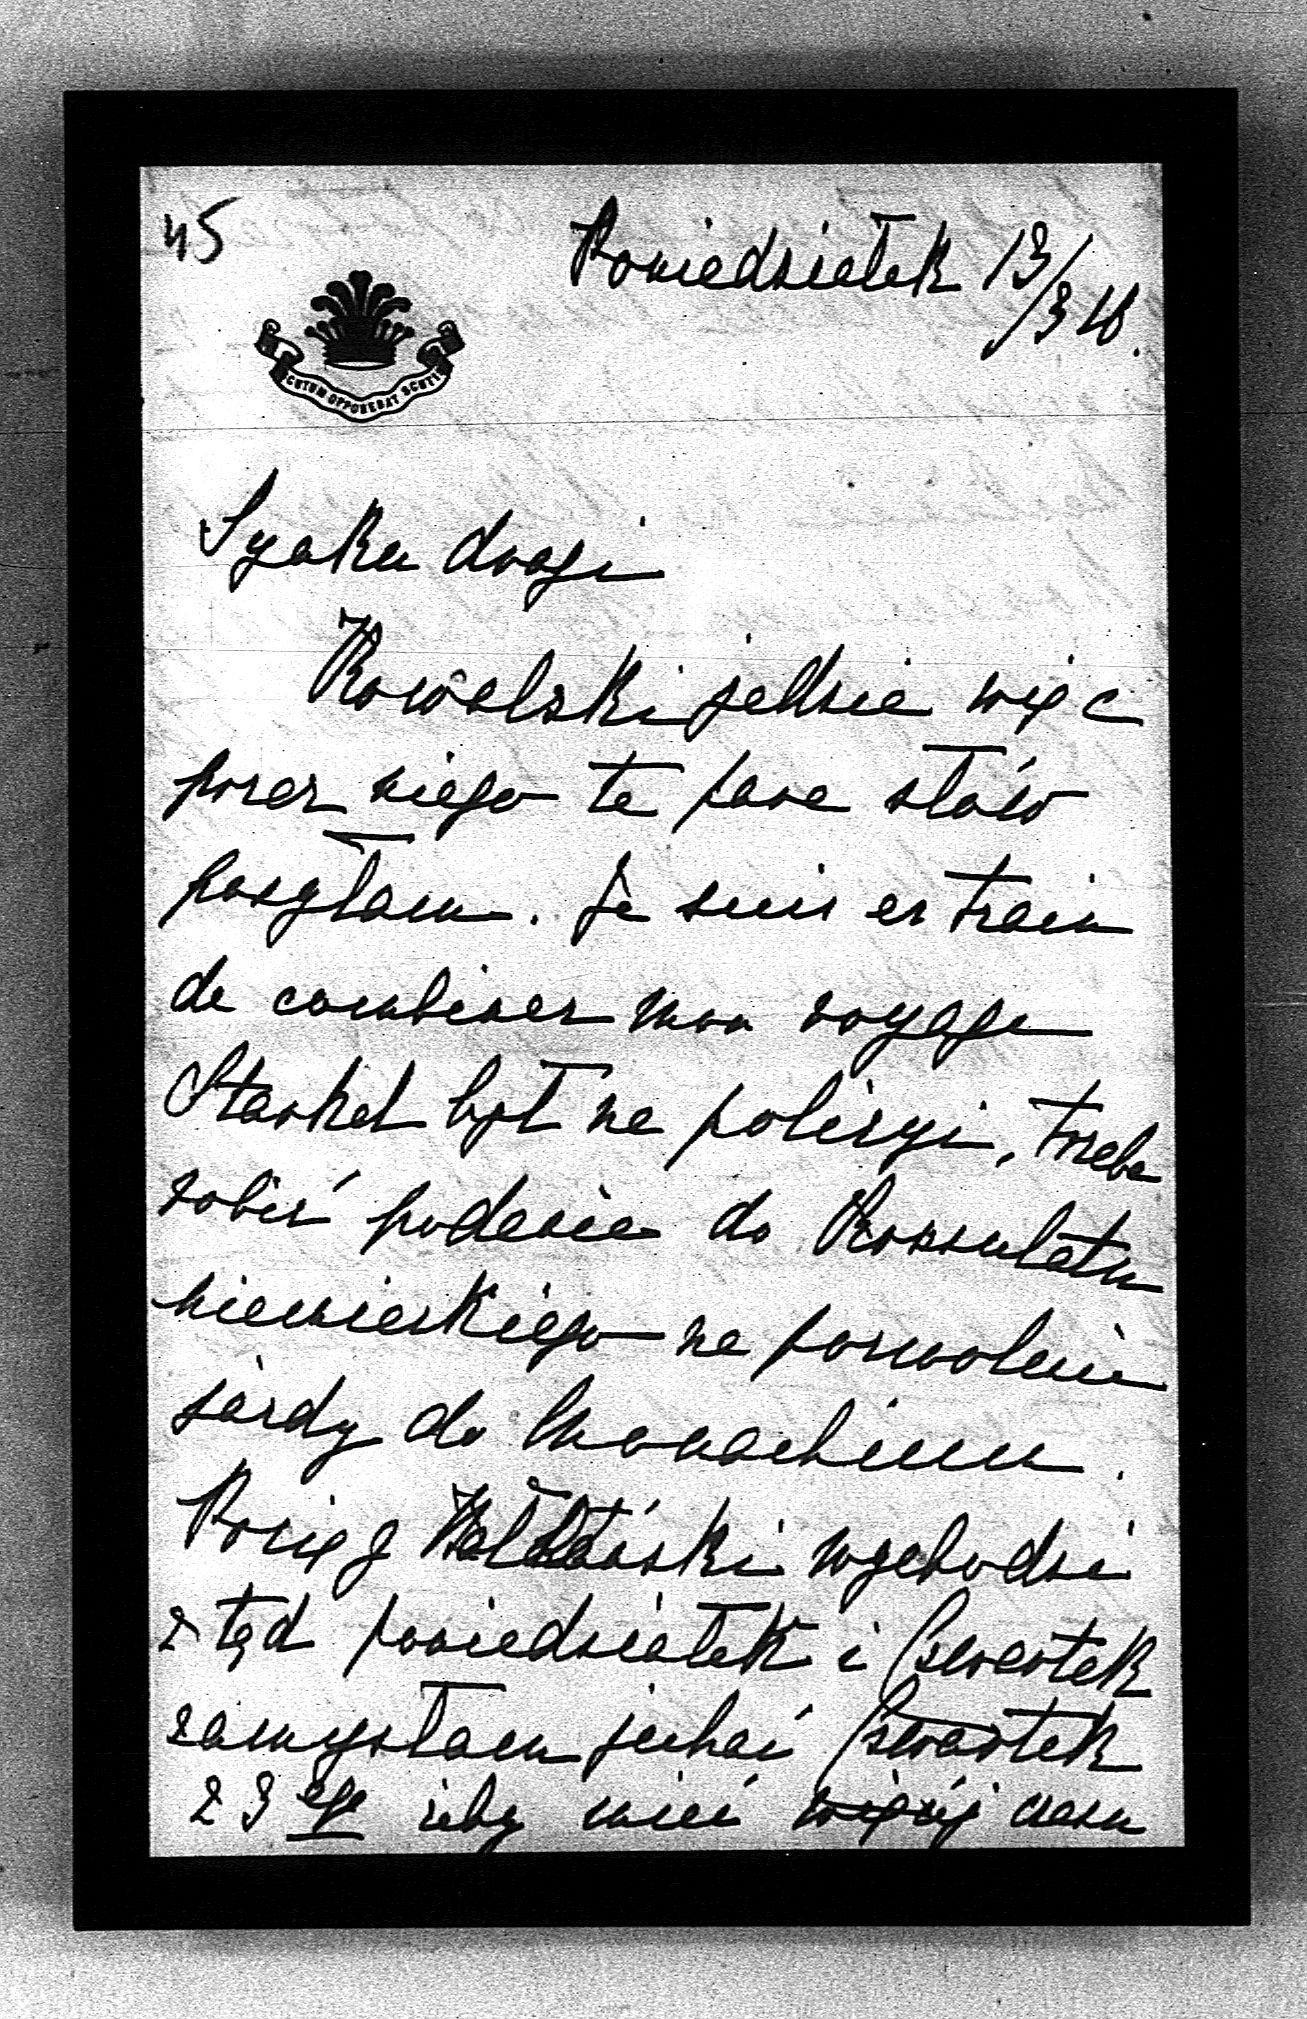 45
Poniedziałek 13/3 16.
SCUTUM OPPONEBAT SCUTIS
Synku drogi
Kowalski jedzie więc
przez niego te parę słów
posyłam. Je suis en train
de combiner mon voyage
Starkel był na policyi, trzeba
robić podanie do Konsulatu
niemieckiego na pozwolenie
jazdy do Monachium.
Pociąg wychodzi
z tąd poniedziałek i czwartek
zamyślam jechać czwartek
23go żeby mieć więcéj czasu